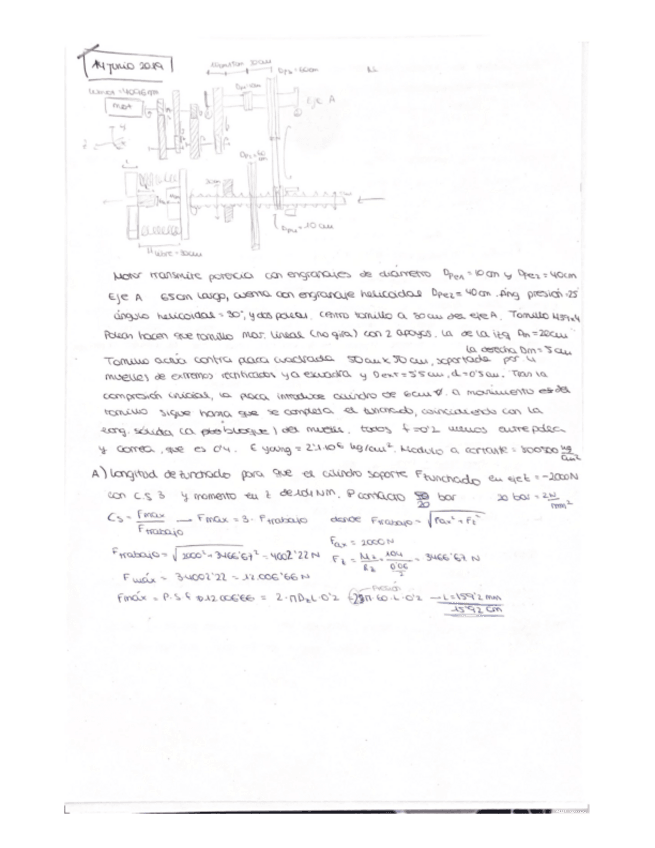 14 junio 2019
30cm
Dp2=60cm
mot
Eje A
Dp1=10cm
Motor transmite potencia con engranajes de diámetro Dpe1=10cm y Dpe2=40cm
Eje A 65cm largo, cuenta con engranaje helicoidal Dpe2=40cm. Áng presión=25
ángulo helicoidal=30°, y dos poleas. Centro tornillo a 30cm del eje A. Tornillo
Poleas hacen que tornillo mov. lineal (no gira) con 2 apoyos. La de la izq Dm=20cm
la derecha Dm=5cm
Tornillo actúa contra placa cuadrada 50cm x 50cm, soportada por 4
muelles de extremos rectificados y a escuadra y Dext=5'5cm, d=0'5cm. Tras la
compresión inicial, la placa introduce cilindro de 6cm movimiento del
tornillo sigue hasta que se completa el zunchado, coincidiendo con la
long. sólida (a bloque) del muelle. todos f=0'2 menos entre polea
y correa, que es 0'4. E young=2'1·10⁶ kg/cm². Modulo a cortante= kg/cm²
A) Longitud de zunchado para que el cilindro soporte Fzunchado en eje z=-2000N
con C.S 3 y momento en z de 104Nm. P contacto 20 bar 20 bar=2N/mm²
Cs=Fmax/Ftrabajo → Fmax=3·Ftrabajo donde Ftrabajo=√Fax²+Ft²
Fax=2000N
Ftrabajo=√2000²+3466'67²=4002'22N Ft=Mz/Rz=104/(0'06/2)=3466'67N
Fmáx=3·4002'22=12.006'66N
Fmáx=P·S·f 12006'66=2·πDzL·0'2 presión 2·π·60·L·0'2 → L=159'2mm
15'92cm